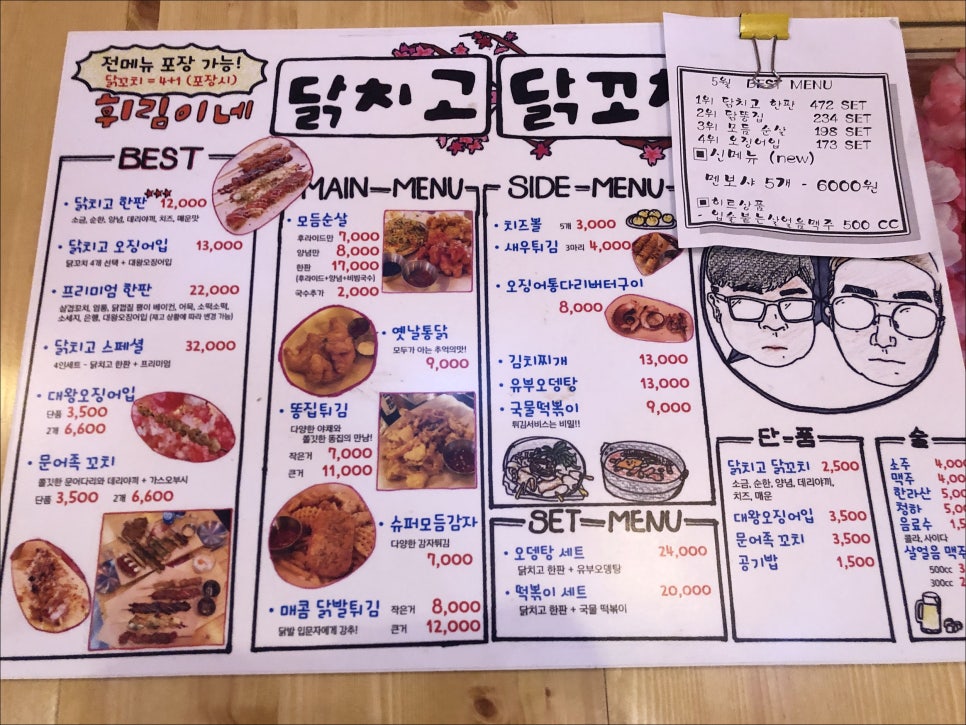 전메뉴 포장 가능!
닭꼬치 = 4+1 (포장시)
휘림이네
닭치고 닭꼬치
5월 BEST MENU
1위 닭치고 한판 472 SET
2위 닭똥집 234 SET
3위 모듬 순살 198 SET
4위 오징어입 173 SET
▣신메뉴 (new)
멘보샤 5개 - 6000원
▣히트상품
- 입술붙는살얼음맥주 500 CC
BEST
· 닭치고 한판 12,000
소금, 순한, 양념, 데리야끼, 치즈, 매운맛
· 닭치고 오징어입 13,000
닭꼬치 4개 선택 + 대왕오징어입
· 프리미엄 한판 22,000
살겹꼬치, 염통, 닭껍질 팽이 베이컨, 어묵, 소떡소떡,
소세지, 은행, 대왕오징어입 (재고 상황에 따라 변경 가능)
· 닭치고 스페셜 32,000
4인세트 - 닭치고 한판 + 프리미엄
· 대왕오징어입
단품 3,500
2개 6,600
· 문어족 꼬치
쫄깃한 문어다리와 데리야끼 + 가스오부시
단품 3,500 2개 6,600
MAIN-MENU
· 모듬순살
후라이드만 7,000
양념만 8,000
한판 17,000
(후라이드+양념+비빔국수)
국수추가 2,000
· 옛날통닭
모두가 아는 추억의맛!
9,000
· 똥집튀김
다양한 야채와
쫄깃한 똥집의 만남!
작은거 7,000
큰거 11,000
· 슈퍼모듬감자
다양한 감자튀김
7,000
· 매콤 닭발튀김 작은거 8,000
닭발 입문자에게 강추! 큰거 12,000
SIDE-MENU
· 치즈볼 5개 3,000
· 새우튀김 3마리 4,000
· 오징어통다리버터구이
8,000
· 김치찌개 13,000
· 유부오뎅탕 13,000
· 국물떡볶이 9,000
튀김서비스는 비밀!!
SET-MENU
· 오뎅탕 세트 24,000
닭치고 한판 + 유부오뎅탕
· 떡볶이 세트 20,000
닭치고 한판 + 국물 떡볶이
단-품
닭치고 닭꼬치 2,500
소금, 순한, 양념, 데리야끼,
치즈, 매운
대왕오징어입 3,500
문어족 꼬치 3,500
공기밥 1,500
술
소주 4,00
맥주 4,00
한라산 5,00
청하 5,00
음료수 1,5
콜라, 사이다
살얼음 맥주
500cc 3
300cc 2